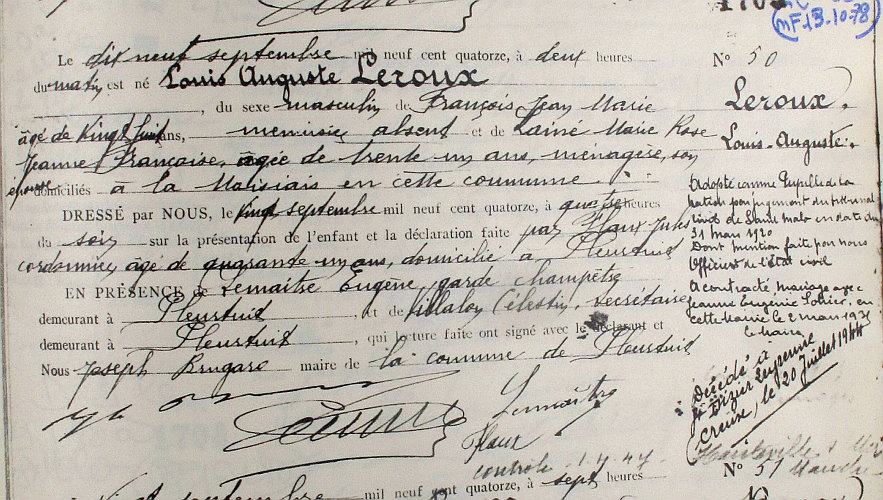 MF. 13.10.78
Le dix neuf septembre mil neuf cent quatorze, à deux heures
du matin est né Louis Auguste Leroux
, du sexe masculin de François Jean Marie
âgé de vingt huit ans, menuisier absent et de Lainé Marie Rose
Jeanne Françoise, âgée de trente un ans, ménagère, son
épouse domiciliés à la Maisiais en cette commune.
DRESSÉ par NOUS, le vingt septembre mil neuf cent quatorze, à quatre heures
du soir sur la présentation de l'enfant et la déclaration faite par Flaux Jules
cordonnier, âgé de quarante un ans, domicilié à Pleurtuit
EN PRÉSENCE de Lemaître Eugène garde champêtre
demeurant à Pleurtuit et de Villalon Célestin, secrétaire
demeurant à Pleurtuit, qui lecture faite ont signé avec le déclarant et
Nous Joseph Brugaro maire de la commune de Pleurtuit
Lemaître
Flaux
contrôle 1.4.47
N° 50
Leroux.
Louis-Auguste.
Adopté comme Pupille de la
nation par jugement du tribunal
civil de Saint malo en date du
31 mars 1920
Dont mention faite par nous
Officier de l'état civil
A contracté mariage avec
Jeanne Eugénie en
cette Mairie le 2 mars 19
le Maire
Décédé à
St Dizier Leyrenne
Creuse, le 20 Juillet 1944
Hauteville
Manche
N° 51
septembre mil neuf cent quatorze, à sept heures